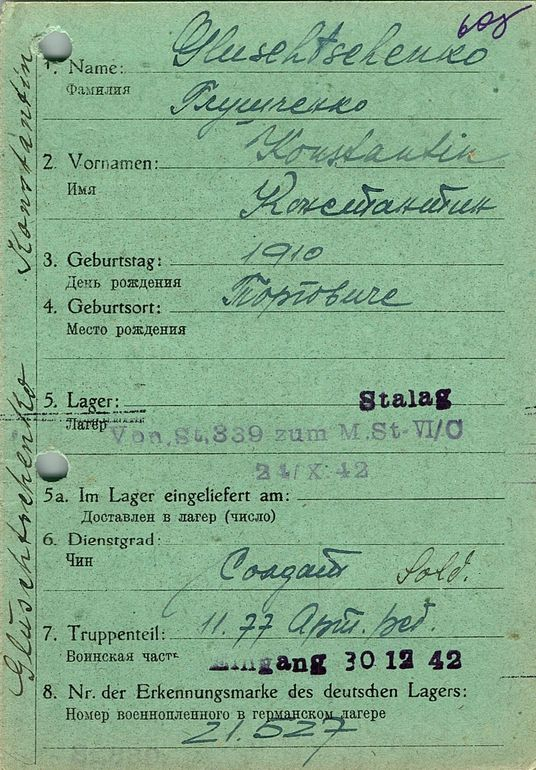 605
Gluschtschenko
1. Name:
Фамилия
Глущченко
Konstantin
2. Vornamen:
Имя
Константин
3. Geburtstag: 1910
День рождения
4. Geburtsort:
Место рождения
5. Lager: Stalag
Лагер
Von, St, 339 zum M. St- VI/C
24/X. 42
5a. Im Lager eingeliefert am:
Доставлен в лагер (число)
6. Dienstgrad:
Чин
Солдат Sold.
7. Truppenteil: 11. 77 Арт.
Воинская часть
Eingang 30 12 42
8. Nr. der Erkennungsmarke des deutschen Lagers:
Номер военнопленного в германском лагере
21.527
Gluschtschenko Konstantin